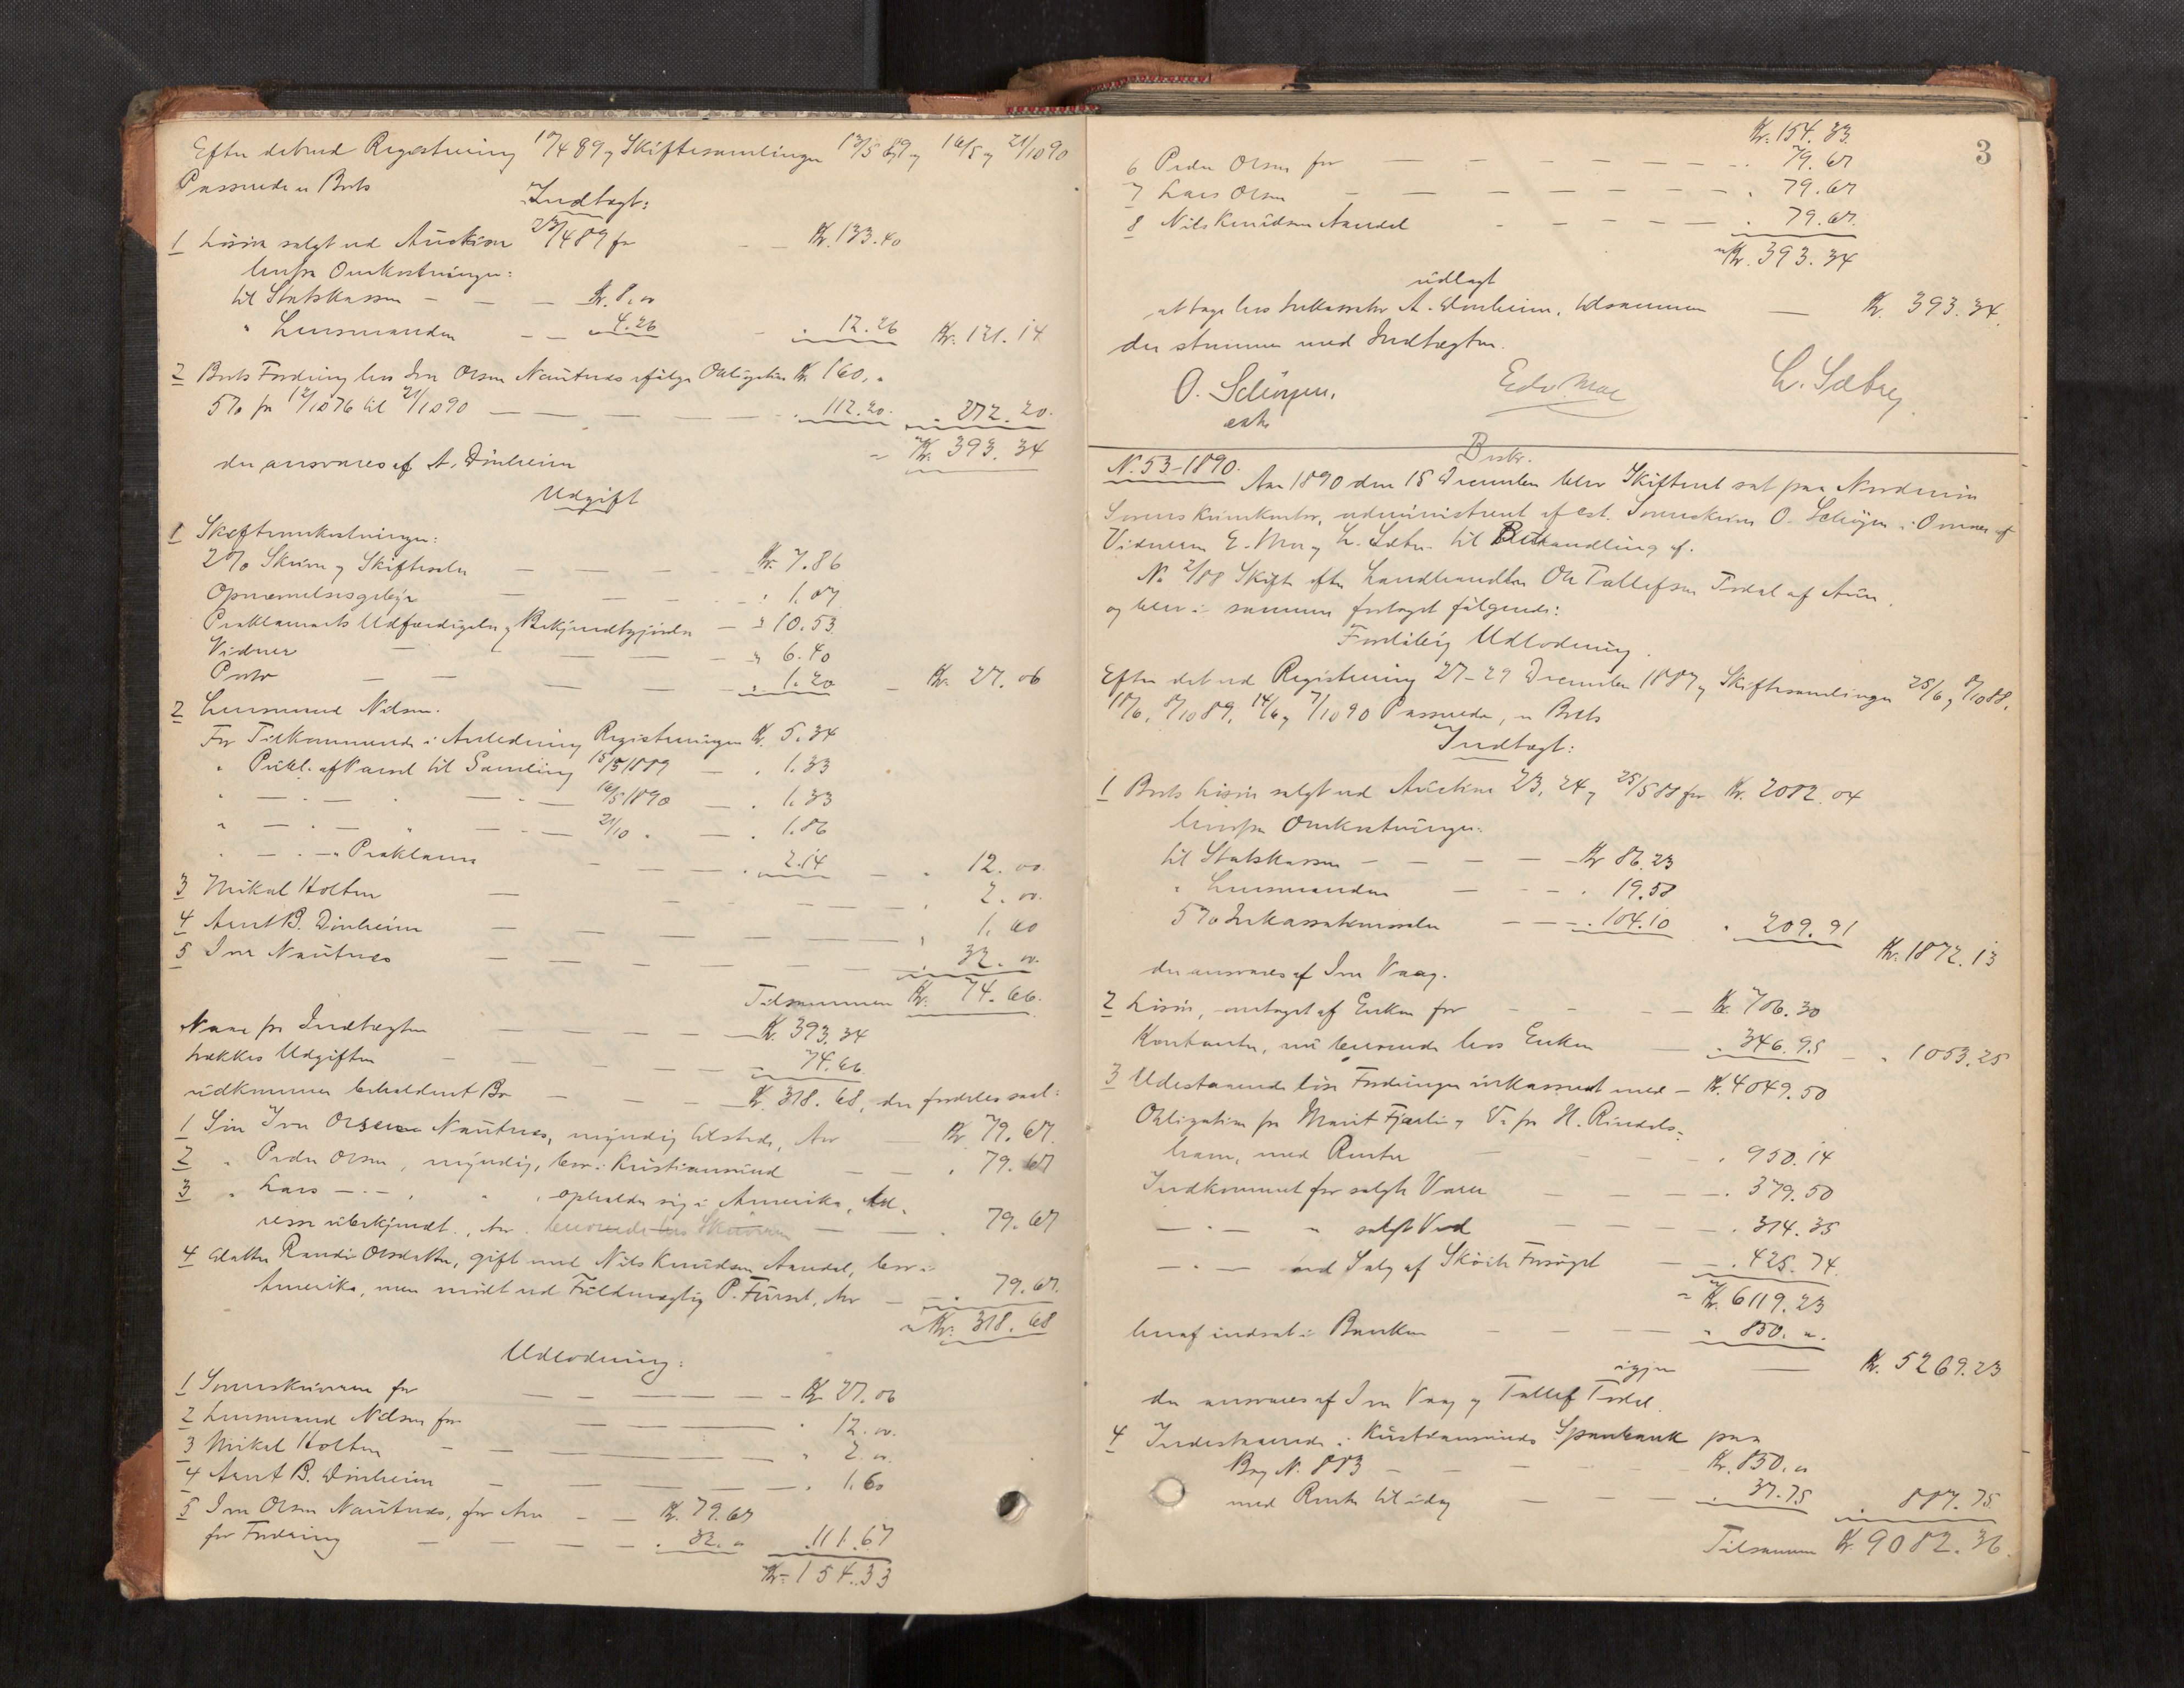 Efter det ved Registrering 17/4 89 og Skiftesamlinger 13/5 89 og 16/5 og 21/10 90
Passerede er Boets
Indtægt:
1 Løsøre solgt ved Auktion 23/4 89 for Kr. 133.40
herfra Omkostninger:
til Statskassen Kr. 8.00
" Lensmanden 4.26 12.26 Kr. 121.14
2 Boets Fordring hos Iver Olsen Nautnes ifølge Obligation Kr. 160."
5% fra 12/10 76 til 21/10 90 112.20 272.20
= Kr. 393.34
der ansvares af A. Dönheim
Udgift
1 Skifteomkostninger:
2% Skriver og Skiftesalær Kr. 7.86
Opnævnelsesgebyr 1.07
Proklamaets Udfærdigelse og Bekjendtgjørelse 10.53
Vidner 6.40
Porto 1.20 Kr. 27.06
2 Lensmand Nilsen.
For Tilkommende i Anledning Registreringen Kr. 5.34
" Publ. af Varsel til Samling 13/5 1889 1.33
" — . — " — . — 16/5 1890 1.33
" — . — " — . — 21/10 " 1.86
" — . — " Proklama 2.14 12.00
3 Mikal Holten 2.00
4 Arnt B. Dönheim 1.60
5 Iver Nautnes 32.00
Tilsammen Kr. 74.66.
Naar fra Indtægten Kr. 393.34
trækkes Udgiften 74.66
udkommer beholdent Bo Kr. 318.68, der fordeles saal:
1 Søn Iver Olsen Nautnes, myndig tilstede, Arv Kr. 79.67.
2 " Peder Olsen, myndig, bor i Kristiansund 79.67
3 " Lars — . — , " , opholder sig i Amerika, Ad-
resse ubekjendt, Arv beroende hos Skriveren 79.67
4 Datter Randi Olsdatter, gift med Nils Knudsen Aandal, bor i
Amerika, men mødt ved Fuldmægtig P. Fürset, Arv 79.67.
= Kr. 318.68
Udlodning:
1 Sorenskriveren for Kr. 27.06
2 Lensmand Nilsen for 12.00.
3 Mikal Holten 2.00
4 Arnt B. Dönheim 1.60
5 Iver Olsen Nautnes, for Arv Kr. 79.67
for Fordring 32." 111.67
Kr. 154.33
3
Kr. 154.33.
6 Peder Olsen for 79.67
7 Lars Olsen 79.67
8 Nils Knudsen Aandal 79.67.
= Kr. 393.34
udlagt
at tage hos Inkassator A. Dönheim, tilsammen Kr. 393.34.
der stemmer med Indtægten.
O. Schøyen.
cst.
Edv. Moe
L. Sæbøe
Beskr.
N. 53-1890. Aar 1890 den 15 December blev Skifteret sat paa Nordmøre
Sorenskriverkontor, administreret af cst. Sorenskriver O. Schøyen i Overvær af
Vidnerne E. Moe og L. Sæbøe til Behandling af:
No 2/88 Skifte efter Landhandler Ole Tallefsen Todal af Aure,
og blev i samme foretaget følgende:
Foreløbig Udlodning.
Efter det ved Registrering 27-29 December 1887 og Skiftesamlinger 25/6, 8/10 88,
18/6, 8/10 89, 14/6 og 7/10 90 Passerede, er Boets
Indtægt:
1 Boets Løsøre solgt ved Auktion 23, 24 og 25/5 88 for Kr. 2082.04
herfra Omkostninger:
til Statskassen Kr. 86.23
" Lensmanden 19.58
5% Inkassationssalær 104.10 209.91 Kr. 1872.13
der ansvares af Iver Vaag.
2 Løsøre, overtaget af Enken for Kr. 706.30
Kontanter, nu beroende hos Enken 346.95 1053.25
3 Udestaaende løse Fordringer inkasseret med Kr. 4049.50
Obligation fra Marit Fjærli og Do fra H. Rindals-
ham, med Renter 950.14
Indkommet for solgte Varer 379.50
— . — " solgt Ved 314.35
— . — ved Salg af Sköite Forsøget 425.74.
= Kr. 6119.23
heraf indsat i Banken 850.".
igjen Kr. 5269.23
der ansvares af Iver Vaag og Tallef Todal.
4 Indestaaende i Kristiansunds Sparebank paa
Bog N. 883 Kr. 850."
med Renter til idag 37.75 887.75.
Tilsammen Kr. 9082.36.